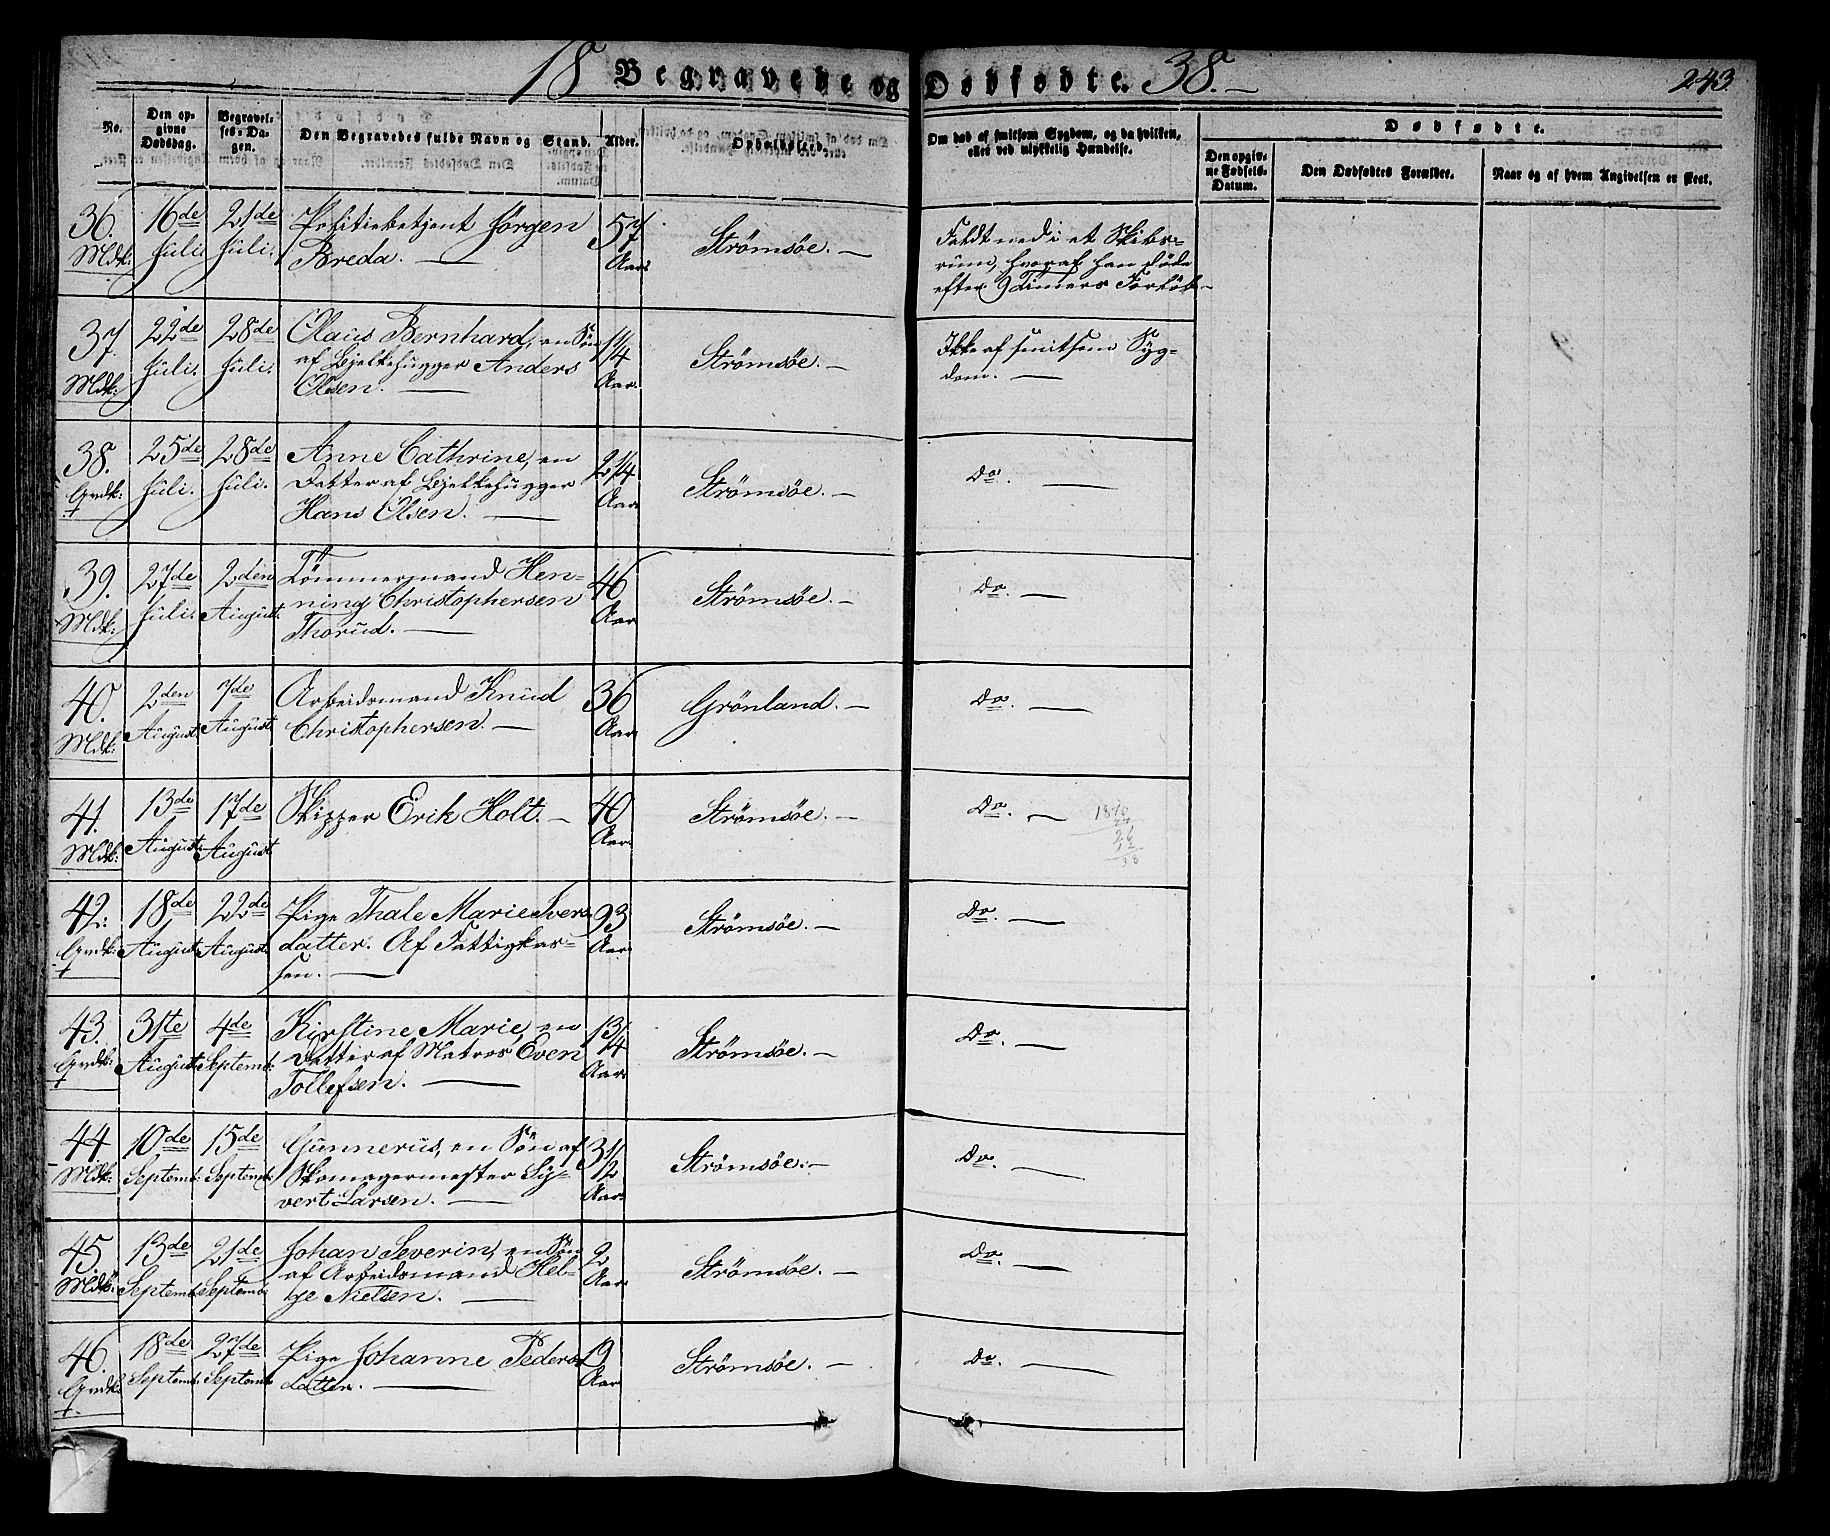 18 Begravede og Dødfødte. 38. 243.
No.
Den op-
givne
Dødsdag.
Begravel-
ses-Da-
gen.
Den Begravedes fulde Navn og Stand.
Alder.
Opholdssted.
Om død af smitsom Sygdom, og da hvilken,
eller ved ulykkelig Hændelse.
Dødfødte.
Den opgiv-
ne Fødsels-
Datum.
Den Dødfødtes Forældre.
Naar og af hvem Angivelsen er skeet.
36.
Mdk:
16de
Juli
21de
Juli.
Politiebetjent Jörgen
Breda. —
57
Aar
Strömsöe. —
Faldt ned i et Skibs-
rum, hvoraf han döde
efter 9 Timers Forlöb—
37.
Mdk:
22de
Juli.
28de
Juli.
Olaus Bernhard, en Sön
af Bjelkehugger Anders
Olsen. —
1 1/4
Aar.
Strömsöe. —
Ikke af smitsom Syg-
dom. —
38.
Qvdk:
25de
Juli.
28de
Juli.
Anne Cathrine, en
Datter af Bjelkehugger
Hans Olsen. —
2 1/4
Aar
Strömsöe. —
Do. —
39.
Mdk:
27de
Juli.
2den
August.
Tömmermand Hen-
ning Christophersen
Thorud. —
46
Aar
Strömsöe. —
Do. —
40.
Mdk:
2den
August.
7de
August.
Arbeidsmand Knud
Christophersen. —
36
Aar
Grönland. —
Do. —
41.
Mdk:
13de
August.
17de
August.
Skipper Erik Holt. —
40
Aar.
Strömsöe. —
Do. —
42.
Qvdk:
18de
August.
22de
August.
Pige Thale Marie Ivers
datter. Af Fattigkas-
sen. —
93
Aar
Strömsöe. —
Do. —
43.
Qvdk:
31te
August.
4de
Septemb:
Kirstine Marie, en
Datter af Matros Even
Tollefsen. —
1 3/4
Aar
Strömsöe. —
Do. —
44.
Mdk:
10de
Septemb:
15de
Septemb:
Gunnerus, en Sön af
Skomagermester Sy-
vert Larsen. —
3 1/2
Aar.
Strömsöe. —
Do. —
45.
Mdk:
13de
Septemb:
21de
Septemb:
Johan Severin, en Sön
af Arbeidsmand Hel-
ge Nielsen. —
2
Aar
Strömsöe. —
Do. —
46.
Qvdk:
18de
Septemb:
27de
Septemb:
Pige Johanne Peders
datter. —
19
Aar
Strömsöe. —
Do. —